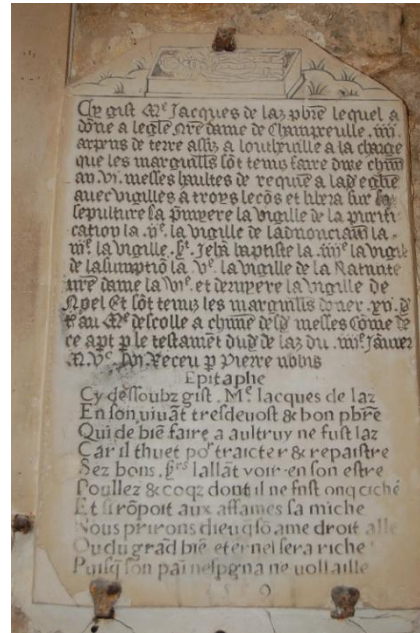 Cy gist Mᵉ Jacques de laz pb̄re lequel a
dōne a leglē nr̄e dame de Champreuille .iiii.
arpens de terre assiz a louibruille a la charge
que les marguills sōt tenus faire dire chūn
an .vi. messes haultes de requiē a lad eglise
auec vigilles a troys lecōs et libera sur sa
sepulture la p̄miyere la vigille de la purifi
cation la .ijᵉ. la vigille de ladnonciaōn la .
iijᵉ. la vigille .sᵗ. Jehā baptiste la .iiijᵉ la vigille
de lasumptiō la .vᵉ. la vigille de la Natiuite
nr̄e dame la viᵉ. et derniyere la vigille de
Noel Et sōt tenuz les marguills doner .xv. d
au Mᵉ descolle a chūne desd messes Cōme de
ce apt p le testamēt dud de laz du .iiijᵉ Januier
M. Vᶜ. Receu p Pierre
Epitaphe
Cy dessoubz gist . Mᵉ. Iacques de laz
En son uiuāt tresdeuost & bon pb̄re
Qui de biē faire a aultruy ne fust laz
Car il thuet poʳ traicter & repaistre
Sez bons .sʳˢ lallāt voir en son estre
Poullez & coqz dont il ne fust onq chiche
Et si rōpoit aux affames sa miche
Nous prirons dieu q sō ame droit alle
Ou du grād biē eternel sera riche
Puisq son pai nespgna ne vollaille